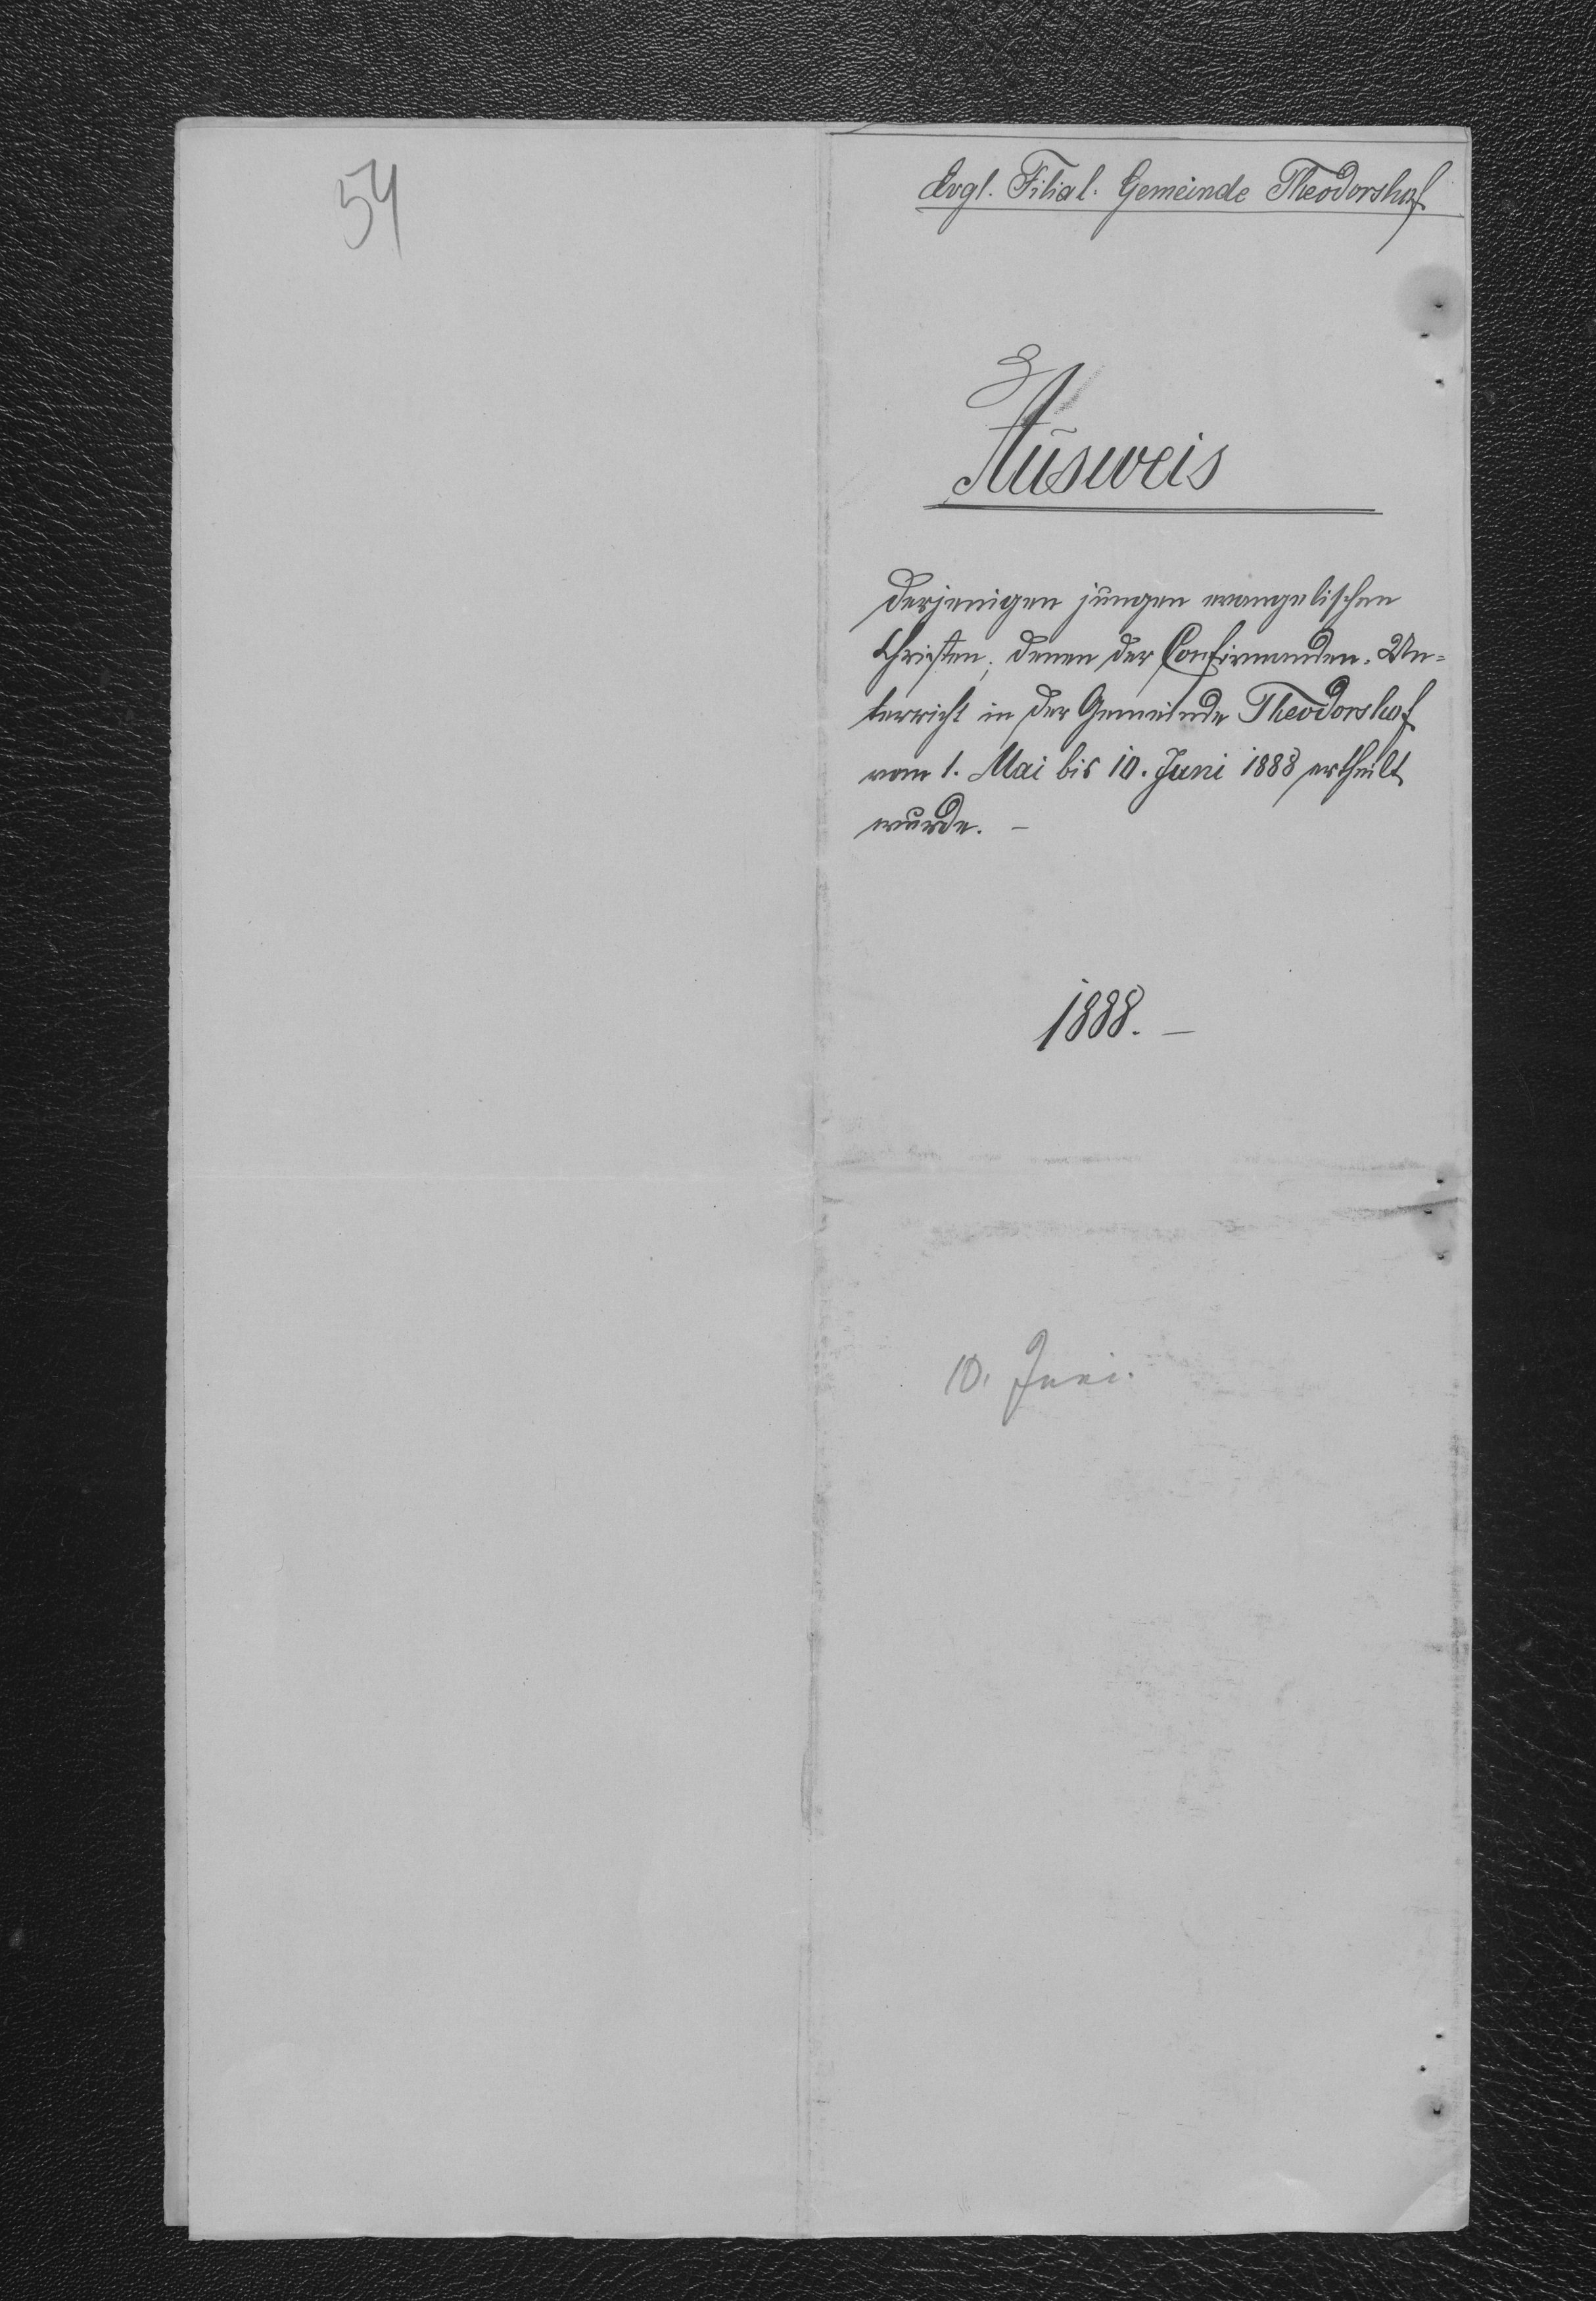 54
Evgl. Filial-Gemeinde Theodorshof
Ausweis
derjenigen jungen evangelischen
Christen, denen der Confirmanden-Un=
terricht in der Gemeinde Theodorshof
vom 1. Mai bis 10. Juni 1888 ertheilt
wurde. –
1888. –
10. Juni.